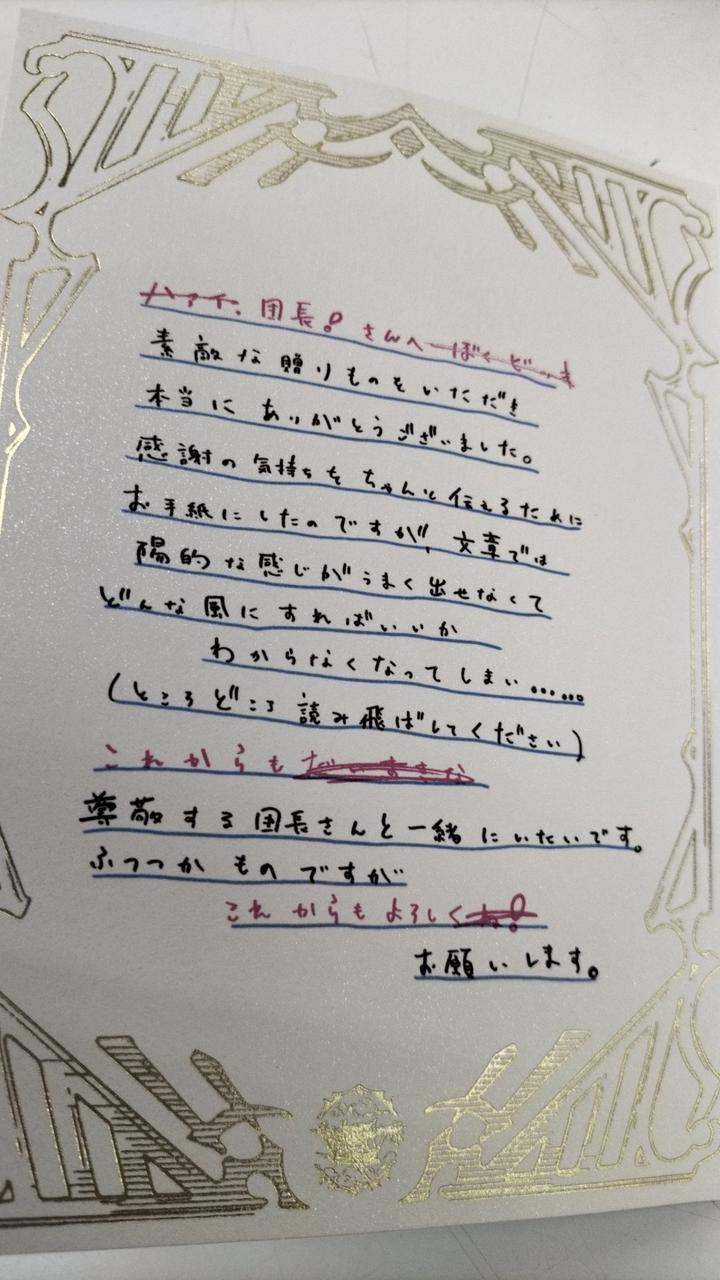 ハァイ、団長!さんへ ぼくどっ
素敵な贈りものをいただき
本当にありがとうございました。
感謝の気持ちをちゃんと伝えるために
お手紙にしたのですが、文章では
陽的な感じがうまく出せなくて
どんな風にすればいいか
わからなくなってしまい……
(ところどころ読み飛ばしてください)
これからも
尊敬する団長さんと一緒にいたいです。
ふつつかものですが
これからもよろしくね!
お願いします。